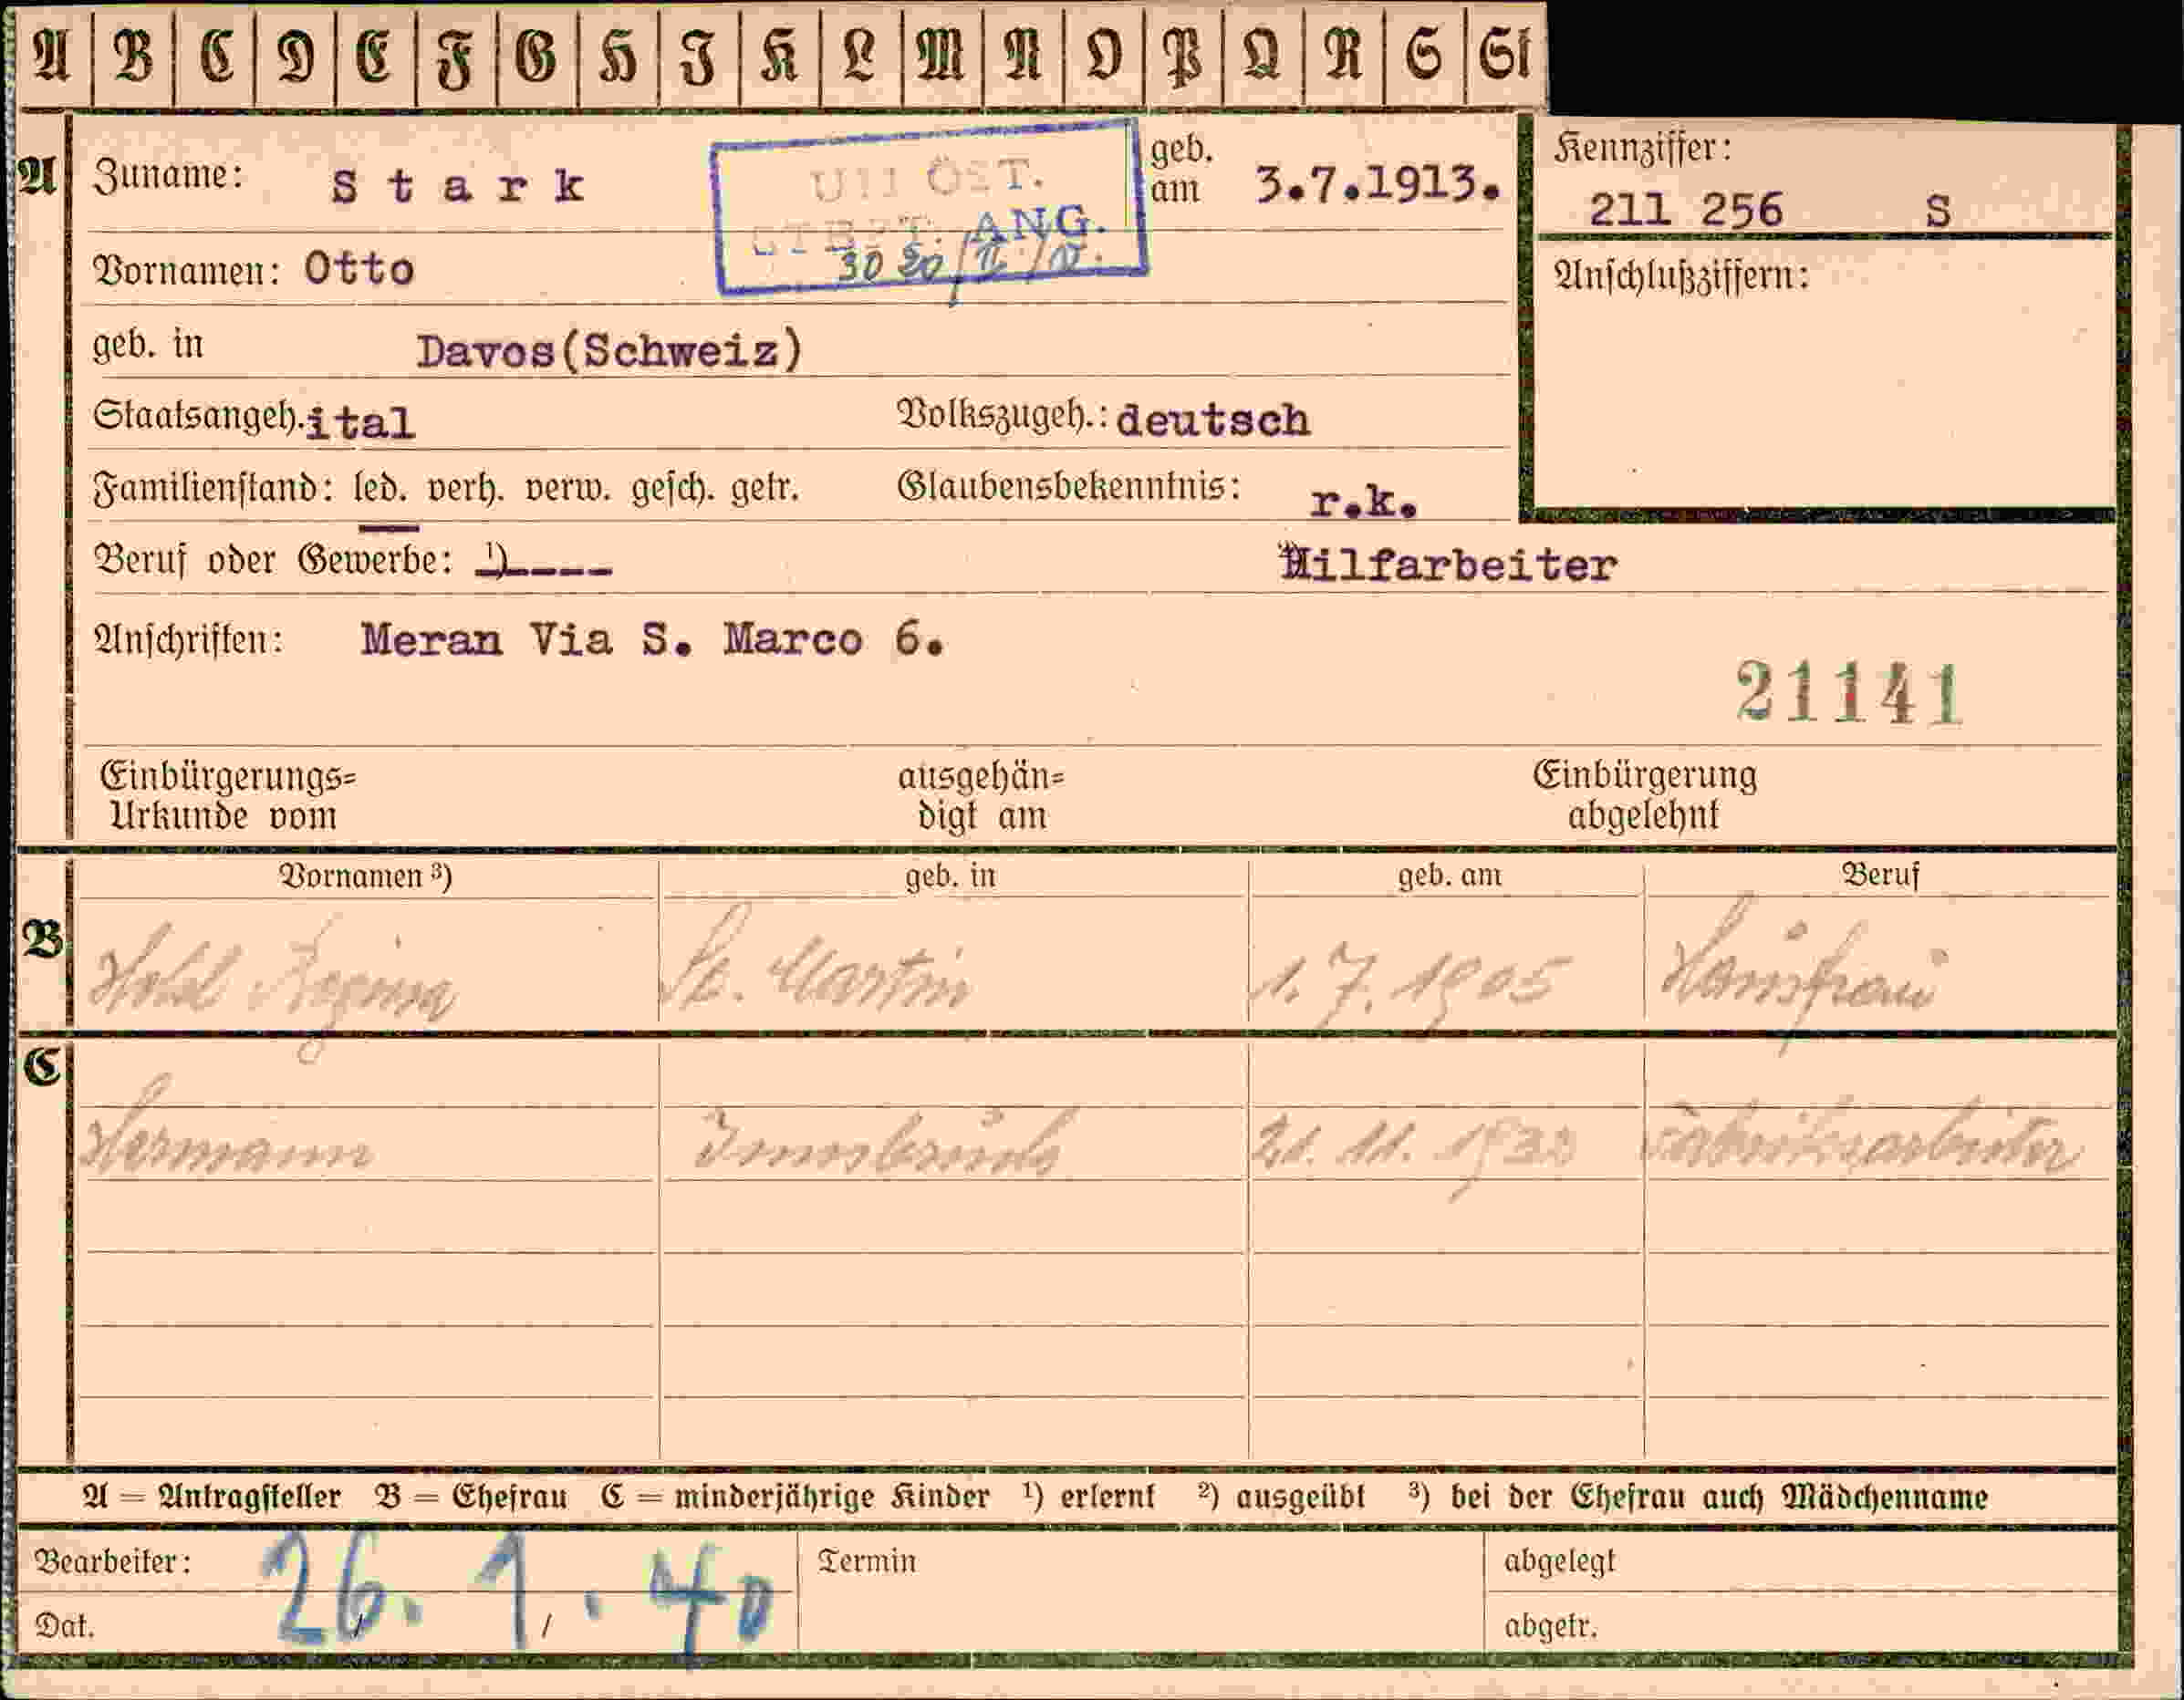 A B C D E F G H I K L M N O P Q R S St
A Zuname: Stark geb. am 3.7.1913.
Kennziffer:
211 256 S
ANG.
Vornamen: Otto
Anschlußziffern:
geb. in Davos(Schweiz)
Staatsangeh. ital Volkszugeh.: deutsch
Familienstand: led. verh. verw. gesch. getr. Glaubensbekenntnis: r.k.
Beruf oder Gewerbe: ¹)---- Hilfarbeiter
Anschriften: Meran Via S. Marco 6.
21141
Einbürgerungs=
Urkunde vom
ausgehän=
digt am
Einbürgerung
abgelehnt
Vornamen ³) geb. in geb. am Beruf
B Regina St. Martin 1. 7. 1905 Hausfrau
C
Hermann Innsbruck 21. 11. Fabriksarbeiter
A = Antragsteller B = Ehefrau C = minderjährige Kinder ¹) erlernt ²) ausgeübt ³) bei der Ehefrau auch Mädchenname
Bearbeiter: Termin abgelegt
26. 1. 40
Dat. / / abgetr.